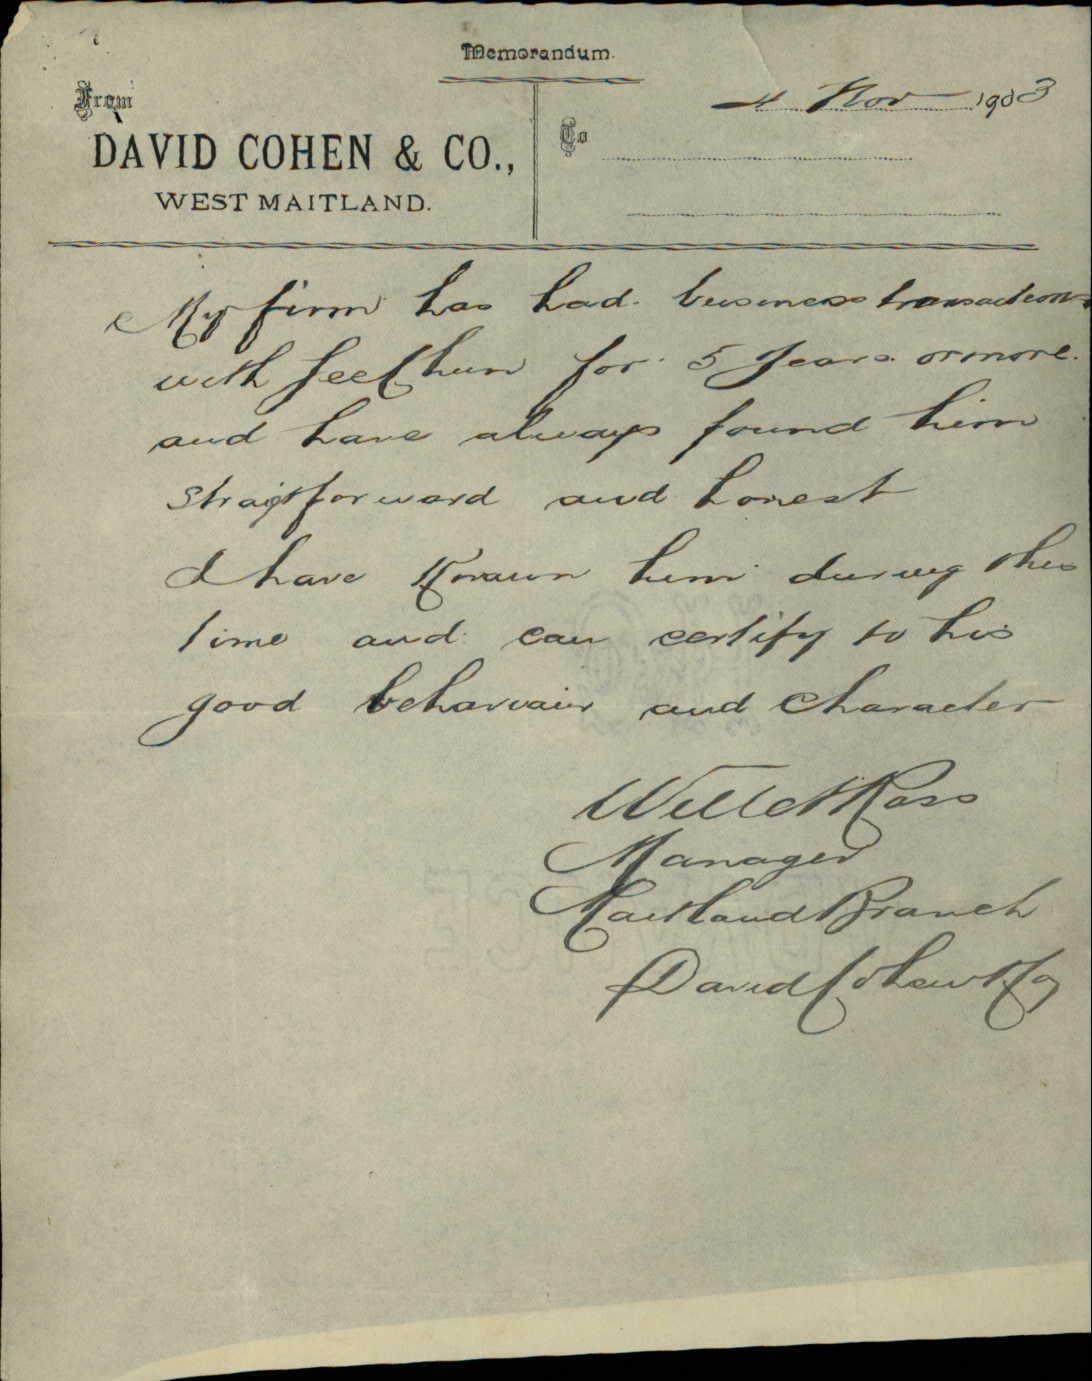 Memorandum.
From
4 Nov 1903
DAVID COHEN & CO.,
To
WEST MAITLAND.
My firm has had business transactions
with for 5 years or more
and have always found him
straigtforward and honest
I have Known him during this
time and can certify to his
good behavaiur and Character
Ross
Manager
Maitland Branch
David Cohen & Co